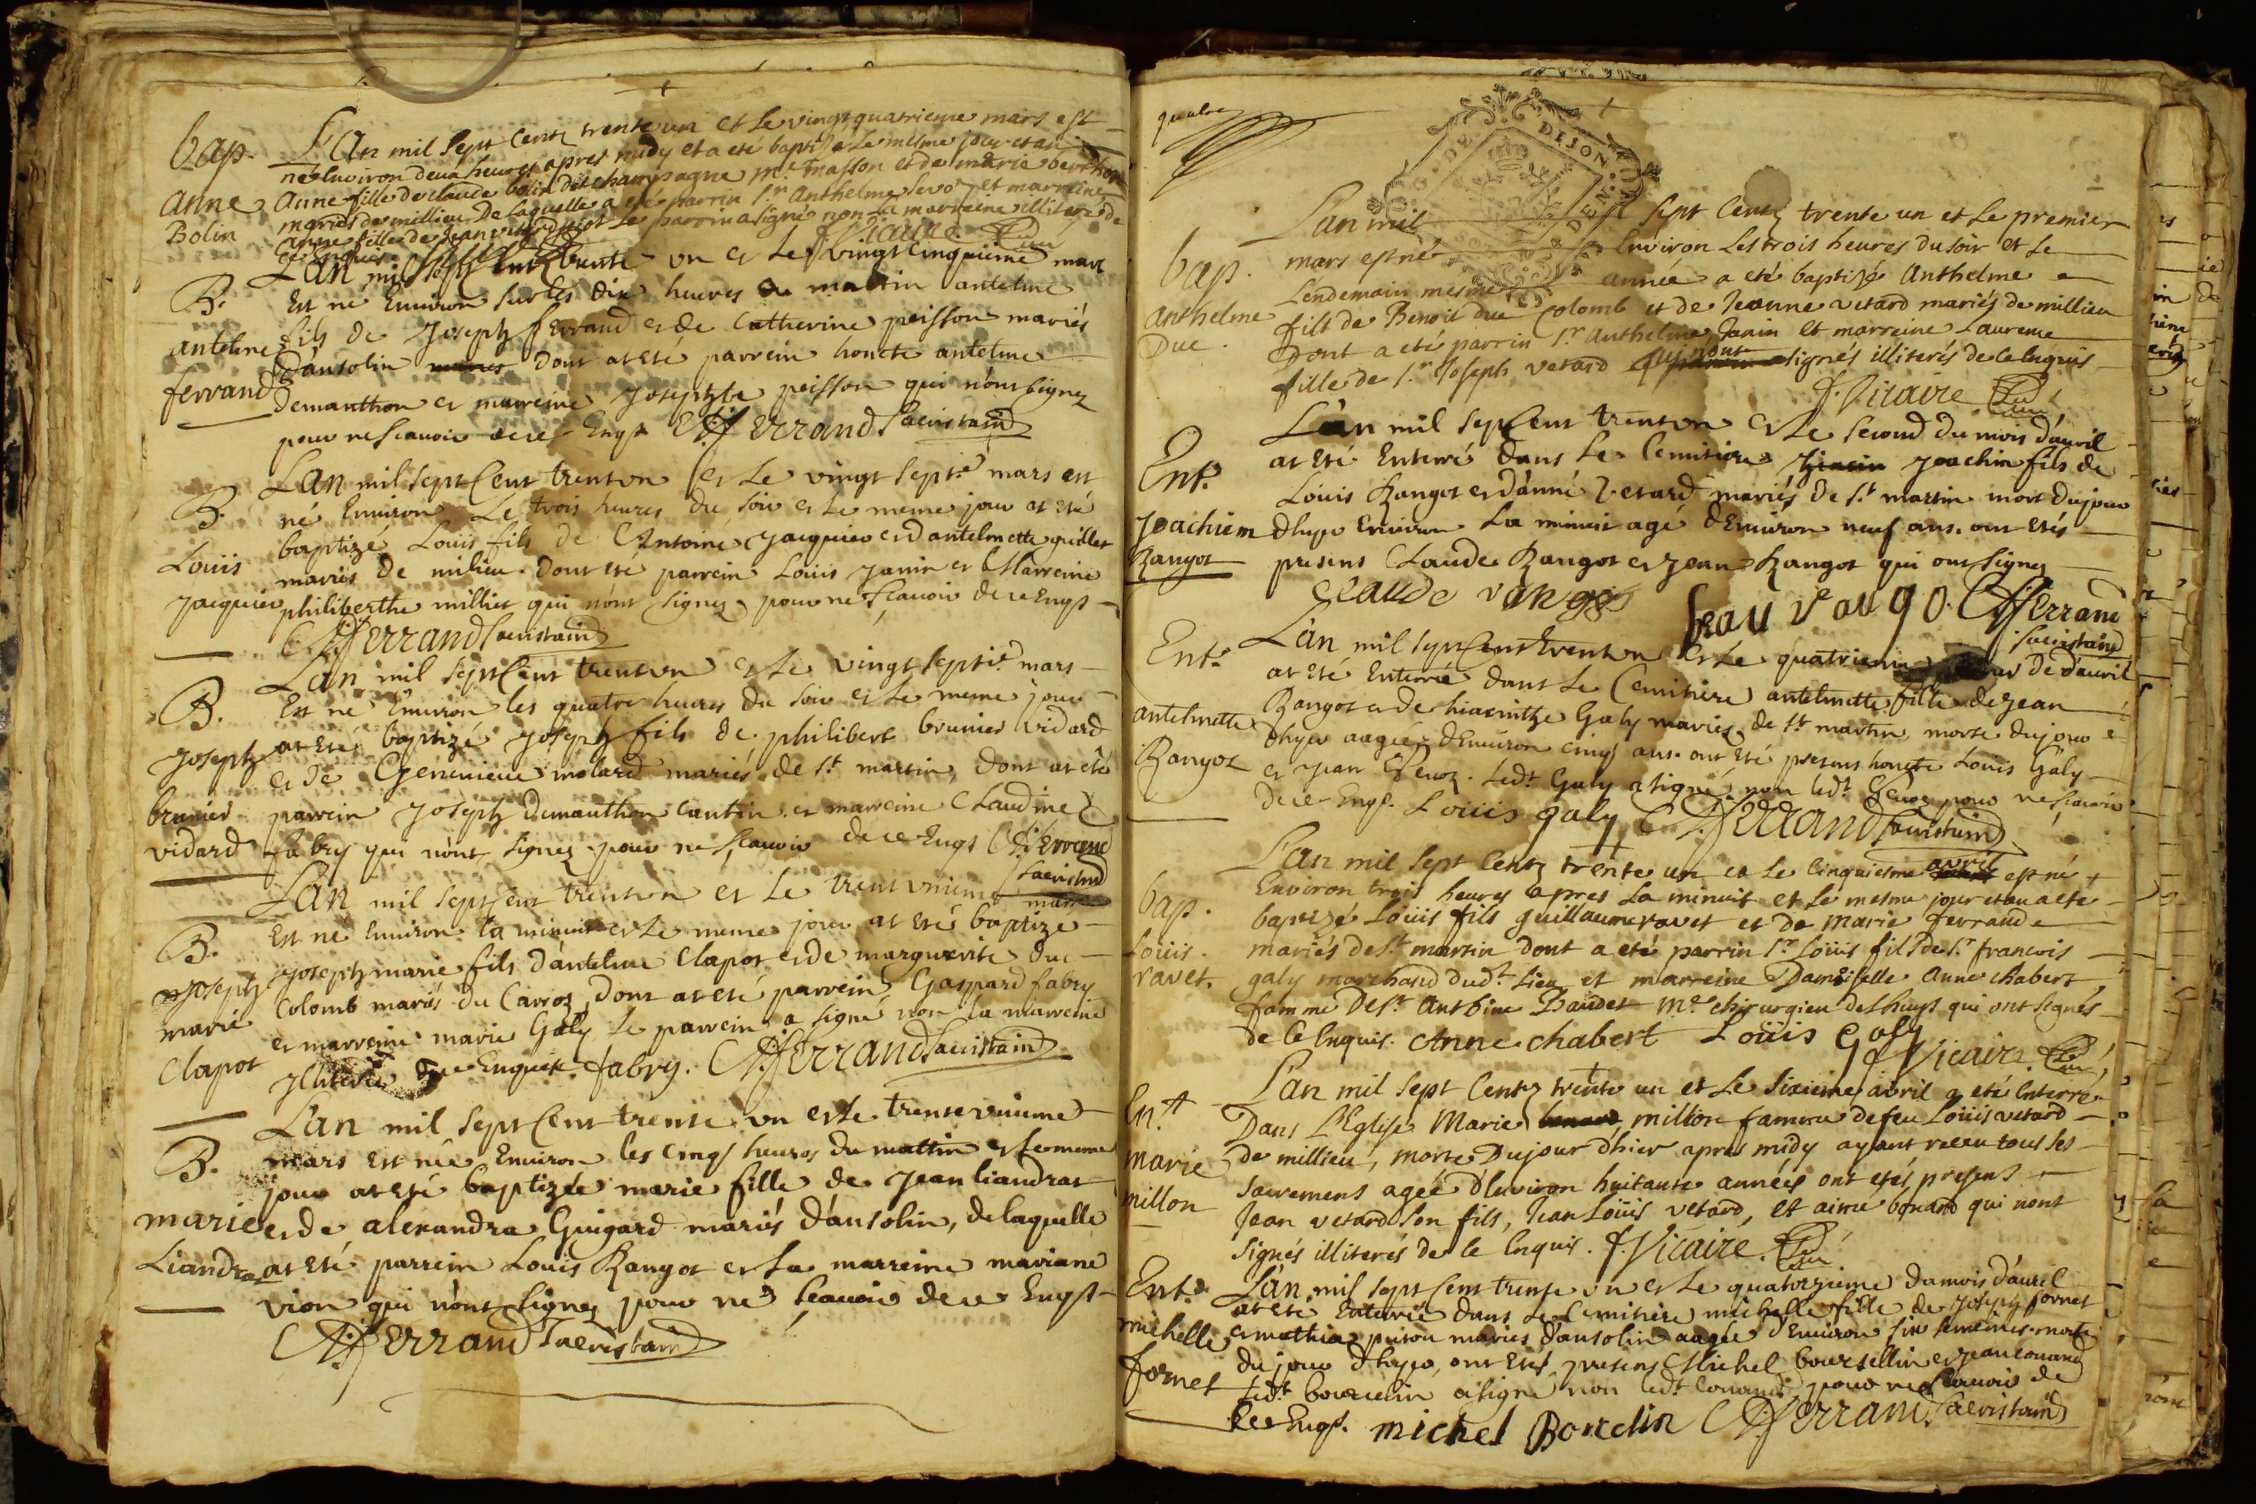 bap.
Anne
Bolin
L'an mil sept centz trente un et le vingt quatrieme mars est
née environ deux heures apres midy et a eté baptisée le mesme jour et an
Anne fille de claude bolin dit champagne me masson et de marie
mariés de millieu De laquelle a eté parrin sr Anthelme et marreine
anne fille de Jean le parrin a signé non la marreine illiterée de
ce enquis. f. Vicaire Cur
B.
anteline
ferrand
L'an mil sept centz trente un et le vingt cinquieme mars
Est né Environ sur les dix heures du matin antelme
fils de Joseph ferrand et de Catherine peisson mariés
d'ansolin dont at eté parrein honete antelme
demanthon et marreine Josephte peisson qui n'ont signez
pour ne scavoir de ce Enqs ferrand sacristain
B.
Louis
Jacquier
L'an mil sept cent trent vn et le vingt septe mars est
né Environ Le trois heures du soir et le meme jour at eté
baptizé Louis fils de Antoine Jacquier et d'antelmette
mariés de milieu. dont eté parrein Louis Janin et Marreine
philiberthe milliet qui n'ont signez pour ne scavoir de ce Enqs
ferrand sacristain
B.
Joseph
brunier
vidard
L'an mil sept cent trent vn et le vingt septie mars
Est né Environ les quatre heures du soir et le meme jour
at eté baptizé Joseph fils de philibert brunier vidard
et de Genevieve molard mariés de st martin, dont at eté
parrein Joseph demanthon cantin et marreine Claudine
fabry qui n'ont signez pour ne scavoir de ce Enqs ferrand
sacristin
B.
Joseph
marie
Clapot
L'an mil sept cent trent vn et le trent vnieme mars
Est né Environ la minuit et le meme jour at eté baptize
Joseph marie fils d'antelme Clapot et de marguerite duc
Colomb mariés du Carroz, dont at eté parrein Gaspard fabry
et marreine marie Galy le parrein a signé non la marreine
Jlliterée de ce Enquise. fabry. ferrand sacristain
B.
marie
Liandrat
L'an mil sept cent trente vn et le trente vnieme
mars Est née Environ les cinq heures du mattin et le meme
jour at eté baptizée marie fille de Jean liandrat
et de alexandra Guigard mariés d'ansolin, de laquelle
at eté parrein Louis Rangot et la marreine mariane
vion qui n'ont signez pour ne scavoir de ce Enqst
ferrand sacristain
quatre
DIJON
bap.
Anthelme
Duc.
L'an mil sept centz trente un et le premier
mars est né environ les trois heures du soir et le
Lendemain mesme année a eté baptizé Anthelme
fils de Benoit duc Colomb et de Jeanne vetard mariés de millieu
Dont a eté parrin sr Anthelme Janin et marreine Laurence
fille de sr Joseph vetard qui n'ont signés illiterés de ce enquis
f. Vicaire Cur
Ent.
Joachiem
Rangot
L'an mil sept cent trent vn et le second du mois d'avril
at eté Enterré dans le Cemitiere Joachim fils de
Louis Rangot et d'anne Vetard mariés de st martin mort du jour
d'hyer Environ la minuit agé d'Environ neuf ans. ont etés
presens Claude Rangot et Jean Rangot qui ont signez
Claude rango Jean rango. ferrand
sacristain
Ent.
antelmette
Rangot
L'an mil sept cent trent vn et le quatrieme d'avril
at eté Enterrée dans le Cemitiere antelmette fille de Jean
Rangot et de hiacinthe Galy mariez de st martin morte du jour
d'hyer aagée d'Environ cinq ans. ont eté presens honete Louis Galy
et Jean Gevoz. ledt Galy a signé non ledt Gevoz pour ne scavoir
de ce Enqs. Louis galy ferrand sacristain
bap.
Louis
ravet.
L'an mil sept centz trente un et le cinquiesme avril est né
Environ trois heures apres La minuit et le mesme jour et an a ete
baptizé Louis fils guillaume ravet et de marie ferrand
mariés de st martin dont a eté parrin sr Louis fils de sr francois
galy marchand dudt lieu et marreine Damoiselle Anne chabert
famme De sr Anthime Baudet me chirurgien de Lhuys qui ont signés
de ce enquis. Anne chabert Louis galy
f. Vicaire. Cur
En.t
marie
millon
L'an mil sept centz trente un et le sixieme avril a eté enterrée
Dans l'Eglise Marie millon famme de feu Louis vetard
de millieu, morte Du jour d'hier apres midy ayant receu tous les
sacremens agée d'environ huitante années ont etés presens
Jean vetard son fils, Jean Louis vetard, et aimé bonard qui nont
signés illiterés de ce enquis. f. Vicaire. Cur
Ent.
michelle
fornet
L'an mil sept cent trente vn et le quatorzieme du mois d'avril
at eté enterrée dans le Cemitiere michelle fille de Joseph fornet
et mathia mariés d'ansolin aagée d'Environ six semaines. morte
du jour d'hyer, ont etés presens Michel boursellin et Jean conand
ledt bourcelin a signé non ledt Conand pour ne scavoir de
ce Enqs. michel Borcelin ferrand sacristain